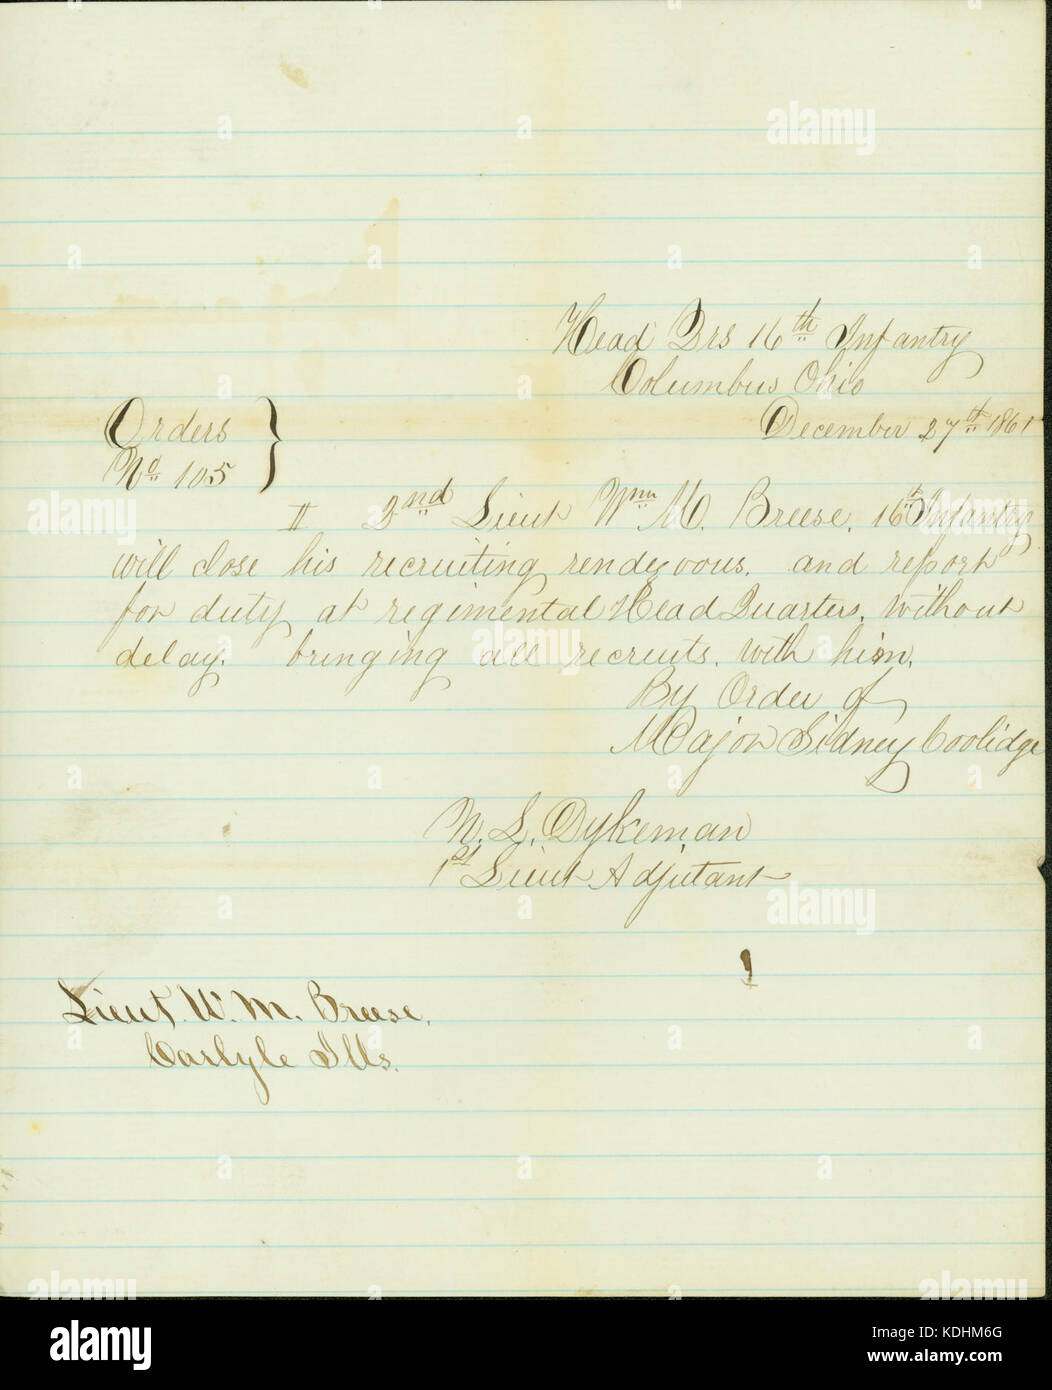 Head Qrs 16th Infantry
Columbus Ohio
December 27th 1861
Orders
No 105
II 2nd Lieut Wm M. Breese, 16th Infantry
will close his recruiting rendezvous, and report
for duty at regimental Head Quarters, without
delay, bringing all recruits, with him.
By Order of
Major Sidney Coolidge
N. L. Dykeman
1st Lieut Adjutant
Lieut. W. M. Breese,
Carlyle Ills.
alamy
Image ID: KDHM6G
www.alamy.com